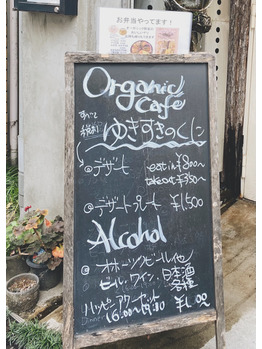 お弁当やってます！
Organic
cafe
すべて
税込
ゆきすきのくに
◎デザート eat in ¥800〜
take out ¥350〜
◎デザートプレート ¥1,500
Alcohol
◎オホーツクビール他
ビール、ワイン、日本酒
各種
ハッピーアワーセット
16:00〜